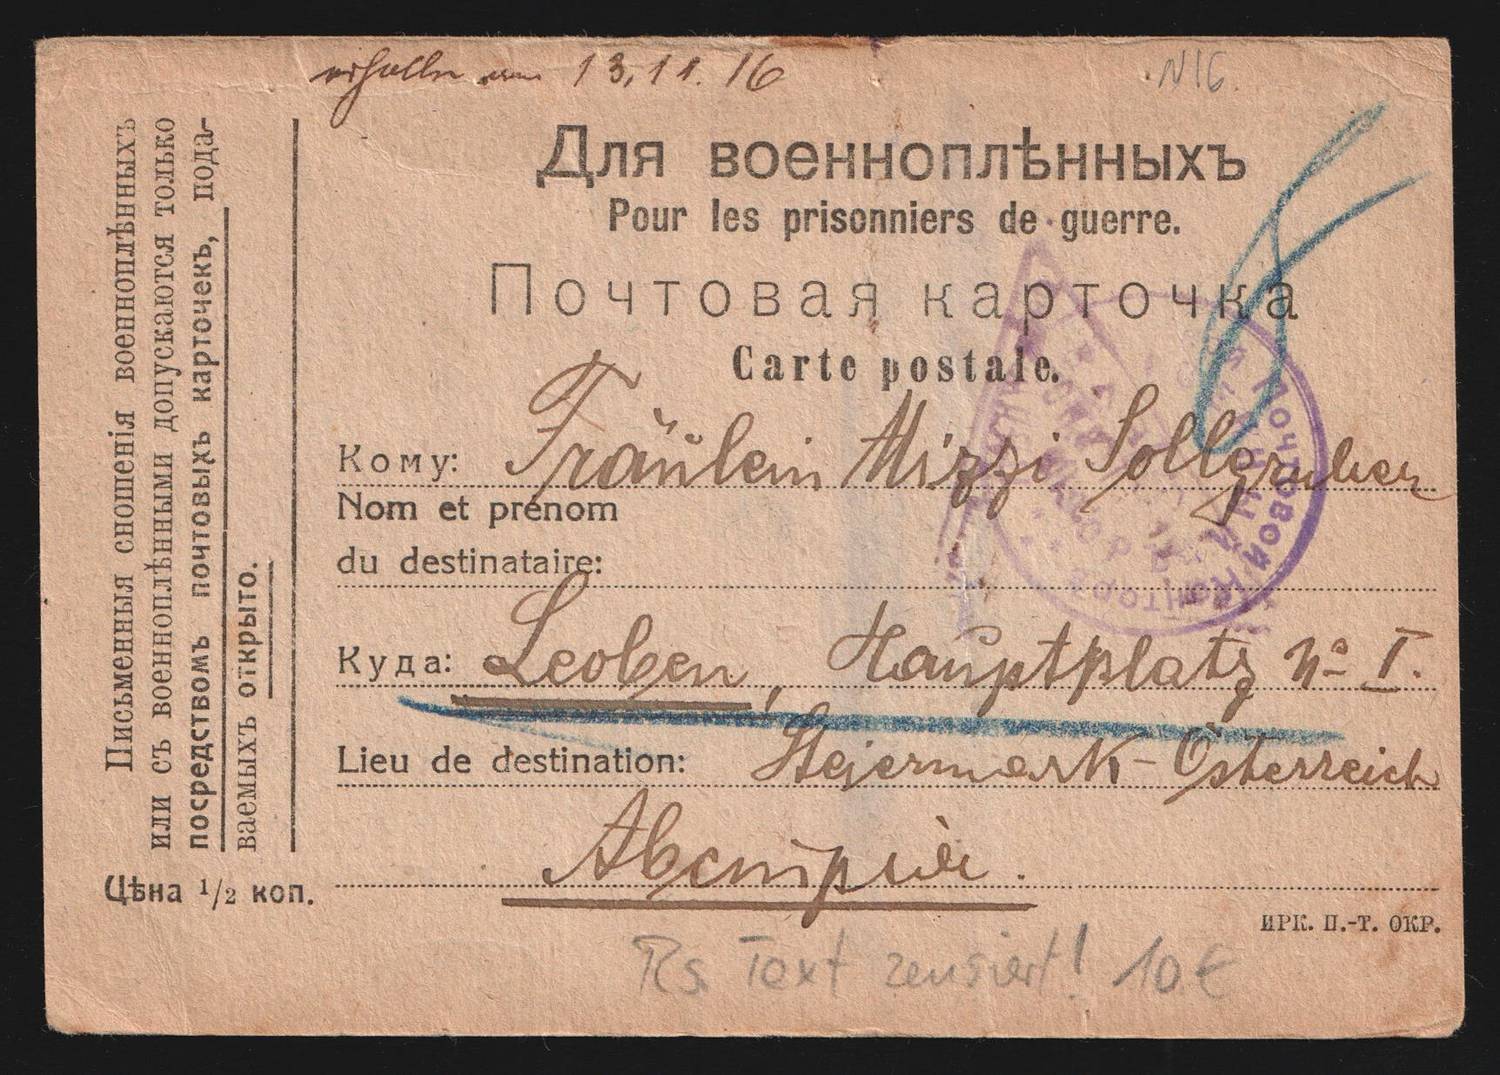 erhalten am 13.11.16
N16.
Для военноплѣнныхъ
Pour les prisonniers de guerre.
Почтовая карточка
Carte postale.
Кому: Fräulein Mizzi Sollgruber
Nom et prénom
du destinataire:
Куда: Leoben, Hauptplatz No I.
Lieu de destination: Steiermark - Österreich
Австрія.
ИРК. П.-Т. ОКР.
Rs. Text zensiert! 10 €
Письменныя сношенія военноплѣнныхъ
или съ военноплѣнными допускаются только
посредствомъ почтовыхъ карточекъ, пода-
ваемыхъ открыто.
Цѣна 1/2 коп.
почтовой конторѣ